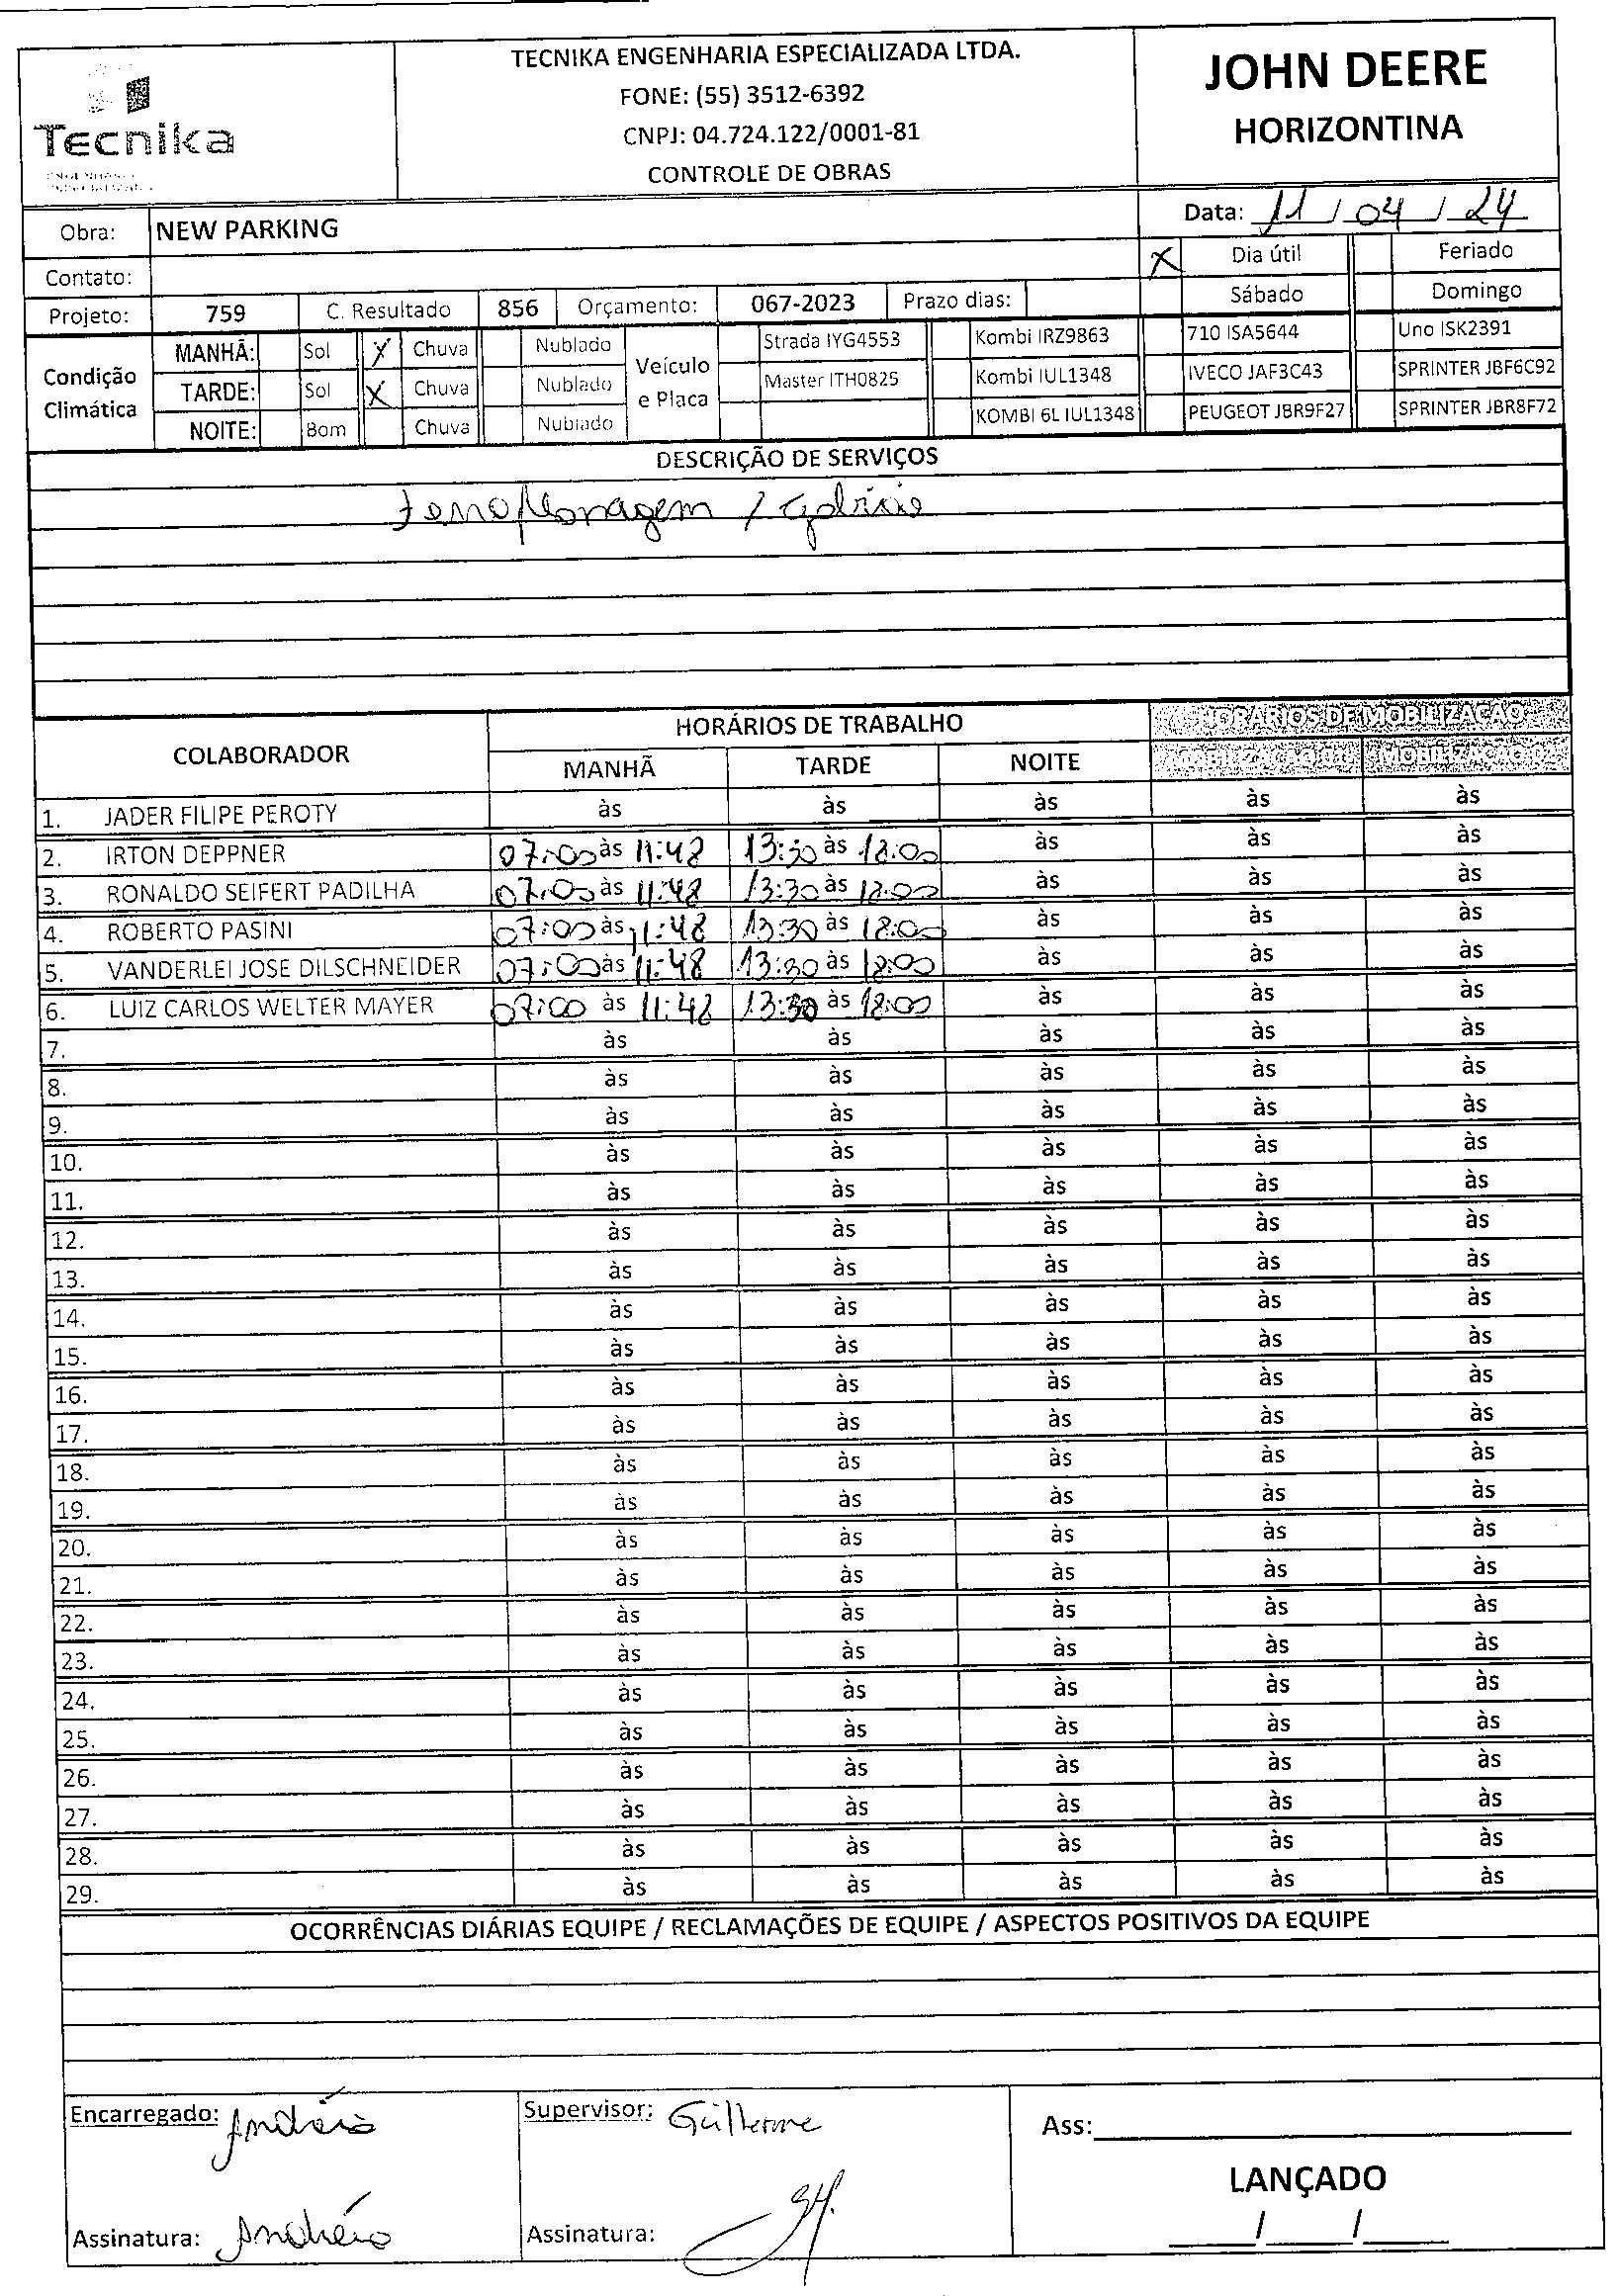 Tecnika
TECNIKA ENGENHARIA ESPECIALIZADA LTDA.
FONE: (55) 3512-6392
CNPJ: 04.724.122/0001-81
CONTROLE DE OBRAS
JOHN DEERE
HORIZONTINA
Obra: NEW PARKING
Data: 11 / 04 / 24
Contato:
X Dia útil Feriado
Sábado Domingo
Projeto: 759 C. Resultado 856 Orçamento: 067-2023 Prazo dias:
Condição Climática
MANHÃ: Sol X Chuva Nublado
TARDE: Sol X Chuva Nublado
NOITE: Bom Chuva Nublado
Veículo e Placa
Strada IYG4553 Kombi IRZ9863 710 ISA5644 Uno ISK2391
Master ITH0825 Kombi IUL1348 IVECO JAF3C43 SPRINTER JBF6C92
KOMBI 6L IUL1348 PEUGEOT JBR9F27 SPRINTER JBR8F72
DESCRIÇÃO DE SERVIÇOS
COLABORADOR HORÁRIOS DE TRABALHO HORÁRIOS DE MOBILIZAÇÃO
MANHÃ TARDE NOITE
1. JADER FILIPE PEROTY às às às às às
2. IRTON DEPPNER 07:00 às 11:48 13:30 às 18:00 às às às
3. RONALDO SEIFERT PADILHA 07:00 às 11:48 13:30 às 18:00 às às às
4. ROBERTO PASINI 07:00 às 11:48 13:30 às 18:00 às às às
5. VANDERLEI JOSE DILSCHNEIDER 07:00 às 11:48 13:30 às 18:00 às às às
6. LUIZ CARLOS WELTER MAYER 07:00 às 11:48 13:30 às 18:00 às às às
7. às às às às às
8. às às às às às
9. às às às às às
10. às às às às às
11. às às às às às
12. às às às às às
13. às às às às às
14. às às às às às
15. às às às às às
16. às às às às às
17. às às às às às
18. às às às às às
19. às às às às às
20. às às às às às
21. às às às às às
22. às às às às às
23. às às às às às
24. às às às às às
25. às às às às às
26. às às às às às
27. às às às às às
28. às às às às às
29. às às às às às
OCORRÊNCIAS DIÁRIAS EQUIPE / RECLAMAÇÕES DE EQUIPE / ASPECTOS POSITIVOS DA EQUIPE
Encarregado: Supervisor: Guilherme Ass:
LANÇADO
Assinatura: Assinatura: / /